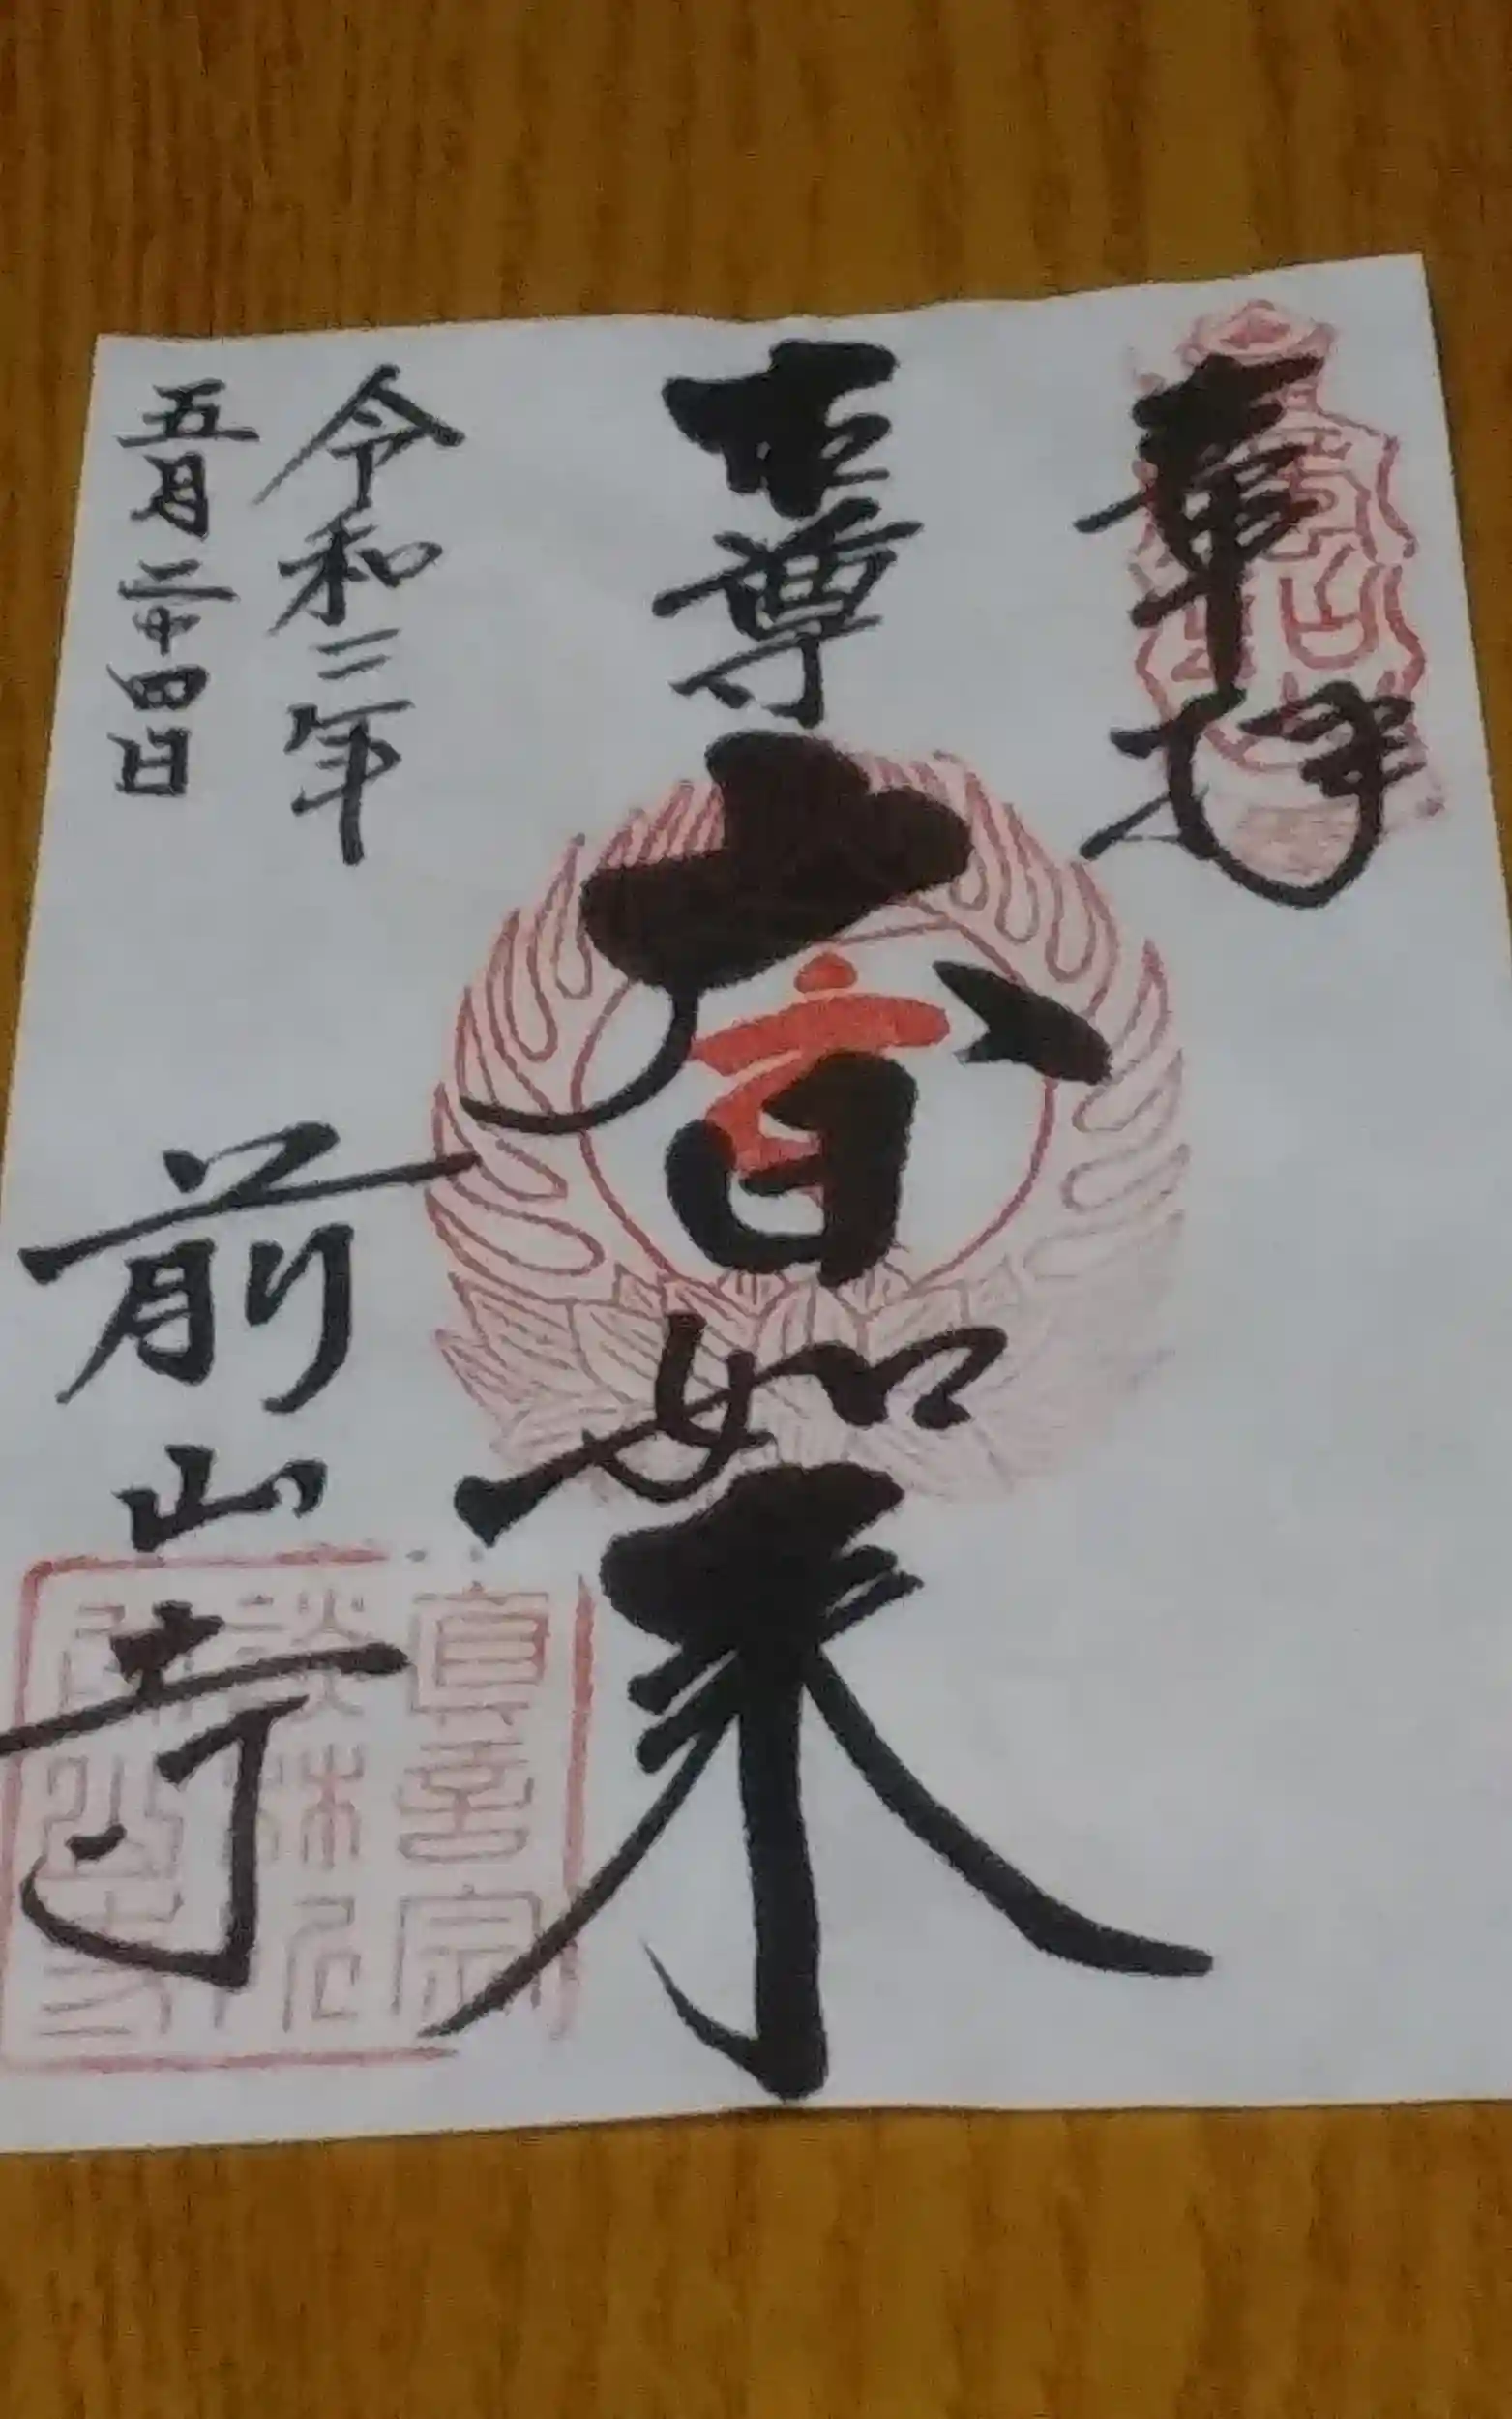 奉拝
本尊大日如来
令和三年
五月二十四日
前山寺
真言宗
談林所
前山寺